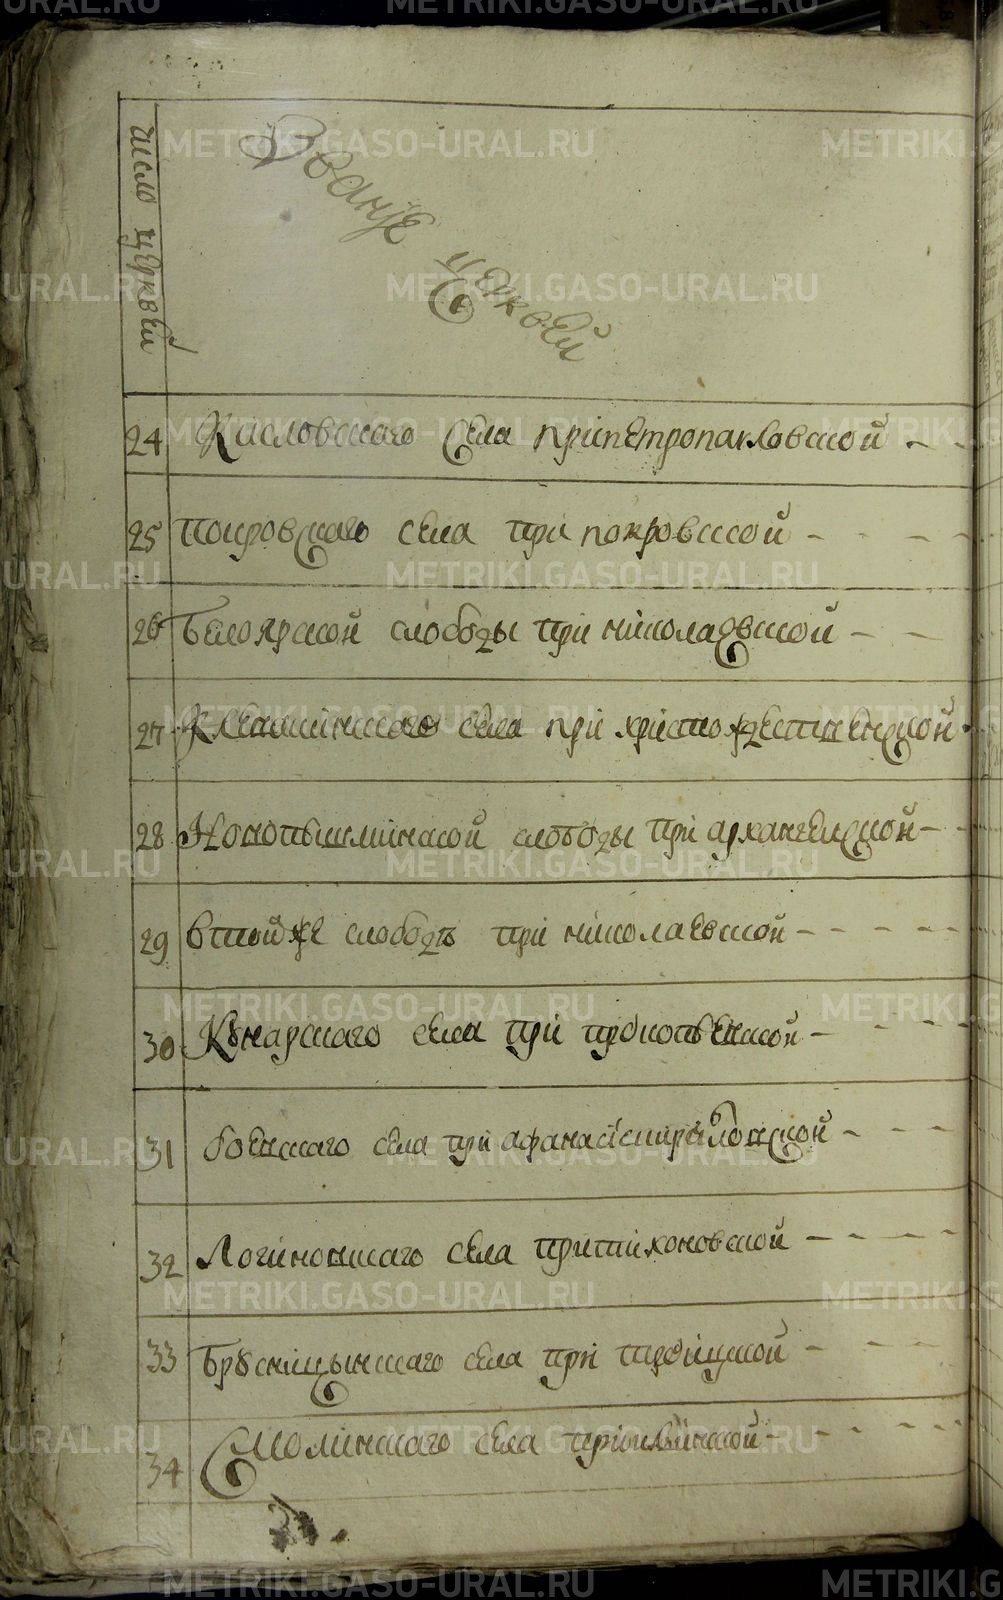 число церквей
Званїе церквей
24 Кисловскаго села прїпетропавловской - -
25 Покровскаго села при покровской - - - -
26 Белоярской слободы при нїколаевской - -
27 Клевакинскаго села прї христорождественской
28 Новопышминской слободы прї архангелской - -
29 в тойже слободѣ прї нїколаевской - - - - -
30 Кꙋнарскаго села прї прокопьевской - - - -
31 боевскаго села прї афанасїекирїловской - - -
32 Логїновскаго села притихоновской - - - - -
33 Брꙋсницынскаго села прї троицкой - - - -
34 Смолїнскаго села прїильїнской - - - - -
METRIKI.GASO-URAL.RU